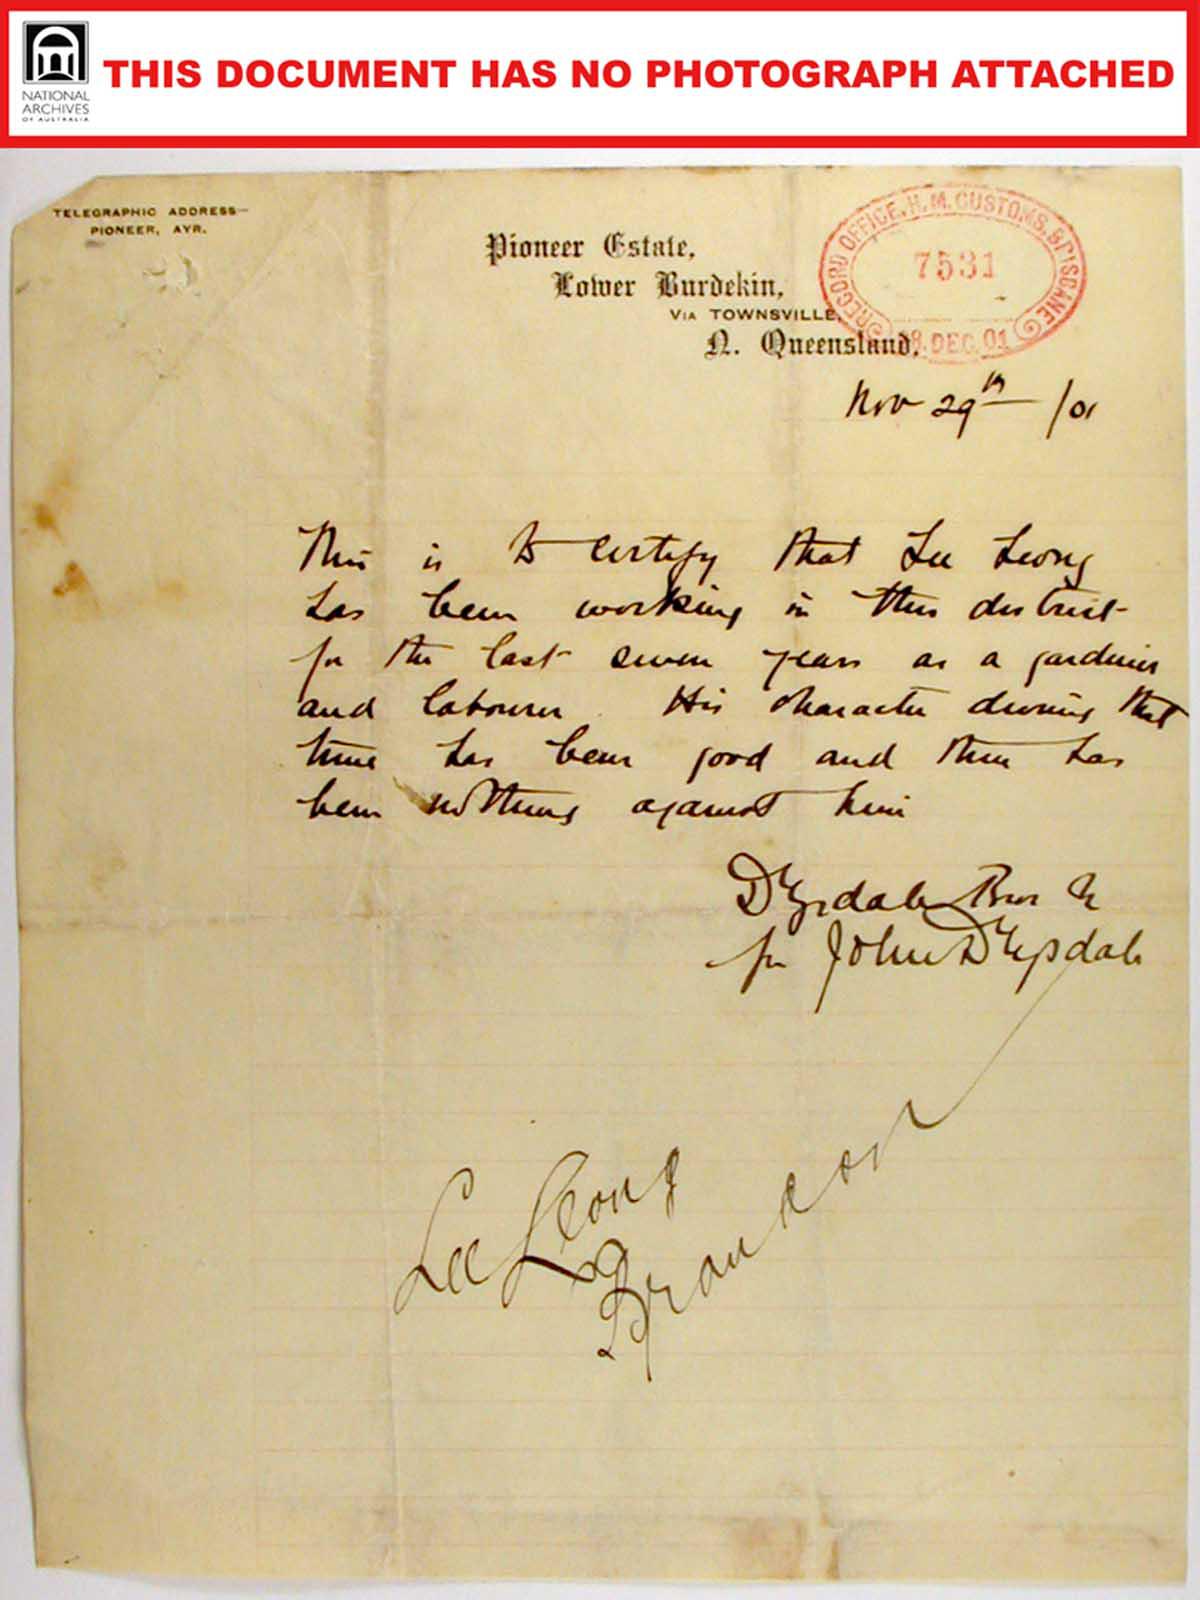 NATIONAL
ARCHIVES
OF AUSTRALIA
THIS DOCUMENT HAS NO PHOTOGRAPH ATTACHED
TELEGRAPHIC ADDRESS—
PIONEER, AYR.
Pioneer Estate,
Lower Burdekin,
VIA TOWNSVILLE,
N. Queensland.
RECORD OFFICE, H. M. CUSTOMS, BRISBANE
7531
DEC. 01
Nov 29th /01
This is to certify that Lee Leong
has been working in this district
for the last seven years as a gardener
and labourer. His character during that
time has been good and there has
been nothing against him
Drysdale Bros
for John Drysdale
Lee Leong
Brandon